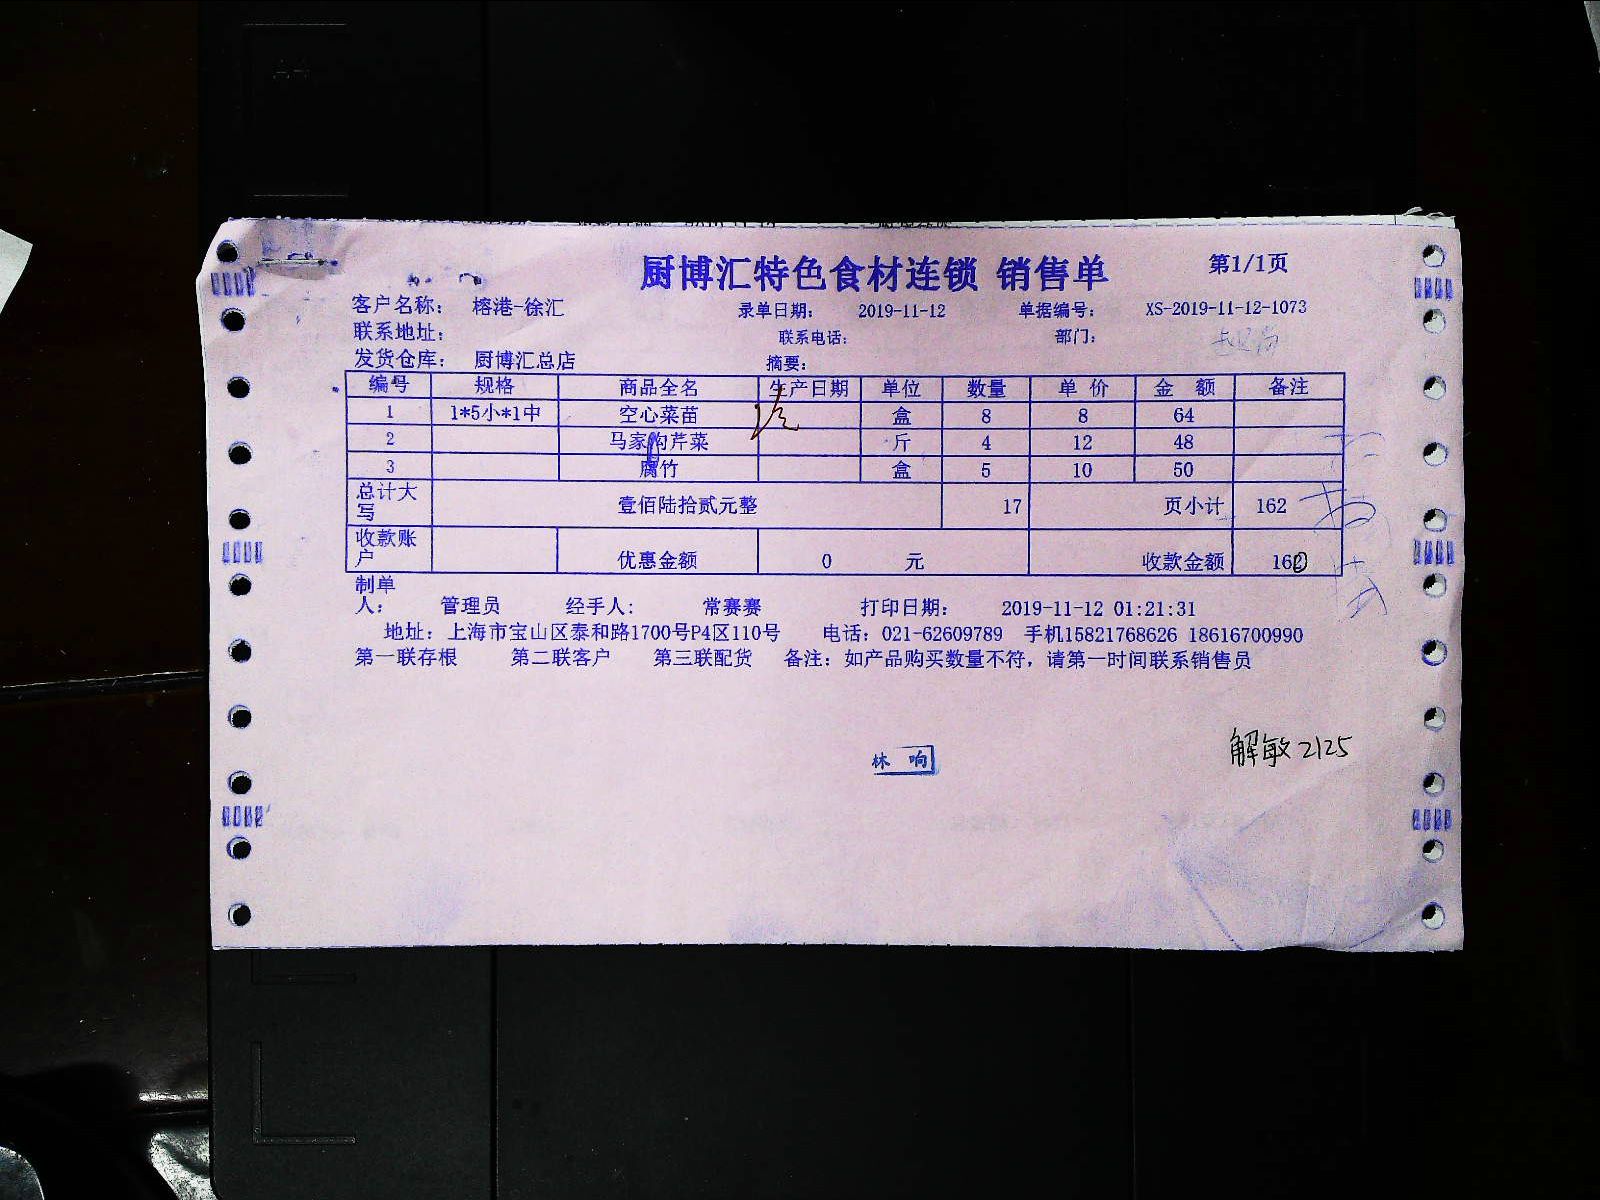 厨博汇特色食材连锁 销售单 第1/1页
客户名称: 榕港-徐汇 录单日期: 2019-11-12 单据编号: XS-2019-11-12-1073
联系地址: 联系电话: 部门:
发货仓库: 厨博汇总店 摘要:
编号 规格 商品全名 生产日期 单位 数量 单价 金额 备注
1 1*5小*1中 空心菜苗 盒 8 8 64
2 马家沟芹菜 斤 4 12 48
3 腐竹 盒 5 10 50
总计大写 壹佰陆拾贰元整 17 页小计 162
收款账户 优惠金额 0 元 收款金额 162
制单人: 管理员 经手人: 常赛赛 打印日期: 2019-11-12 01:21:31
地址: 上海市宝山区泰和路1700号P4区110号 电话: 021-62609789 手机15821768626 18616700990
第一联存根 第二联客户 第三联配货 备注: 如产品购买数量不符,请第一时间联系销售员
林 响
解敏 2125